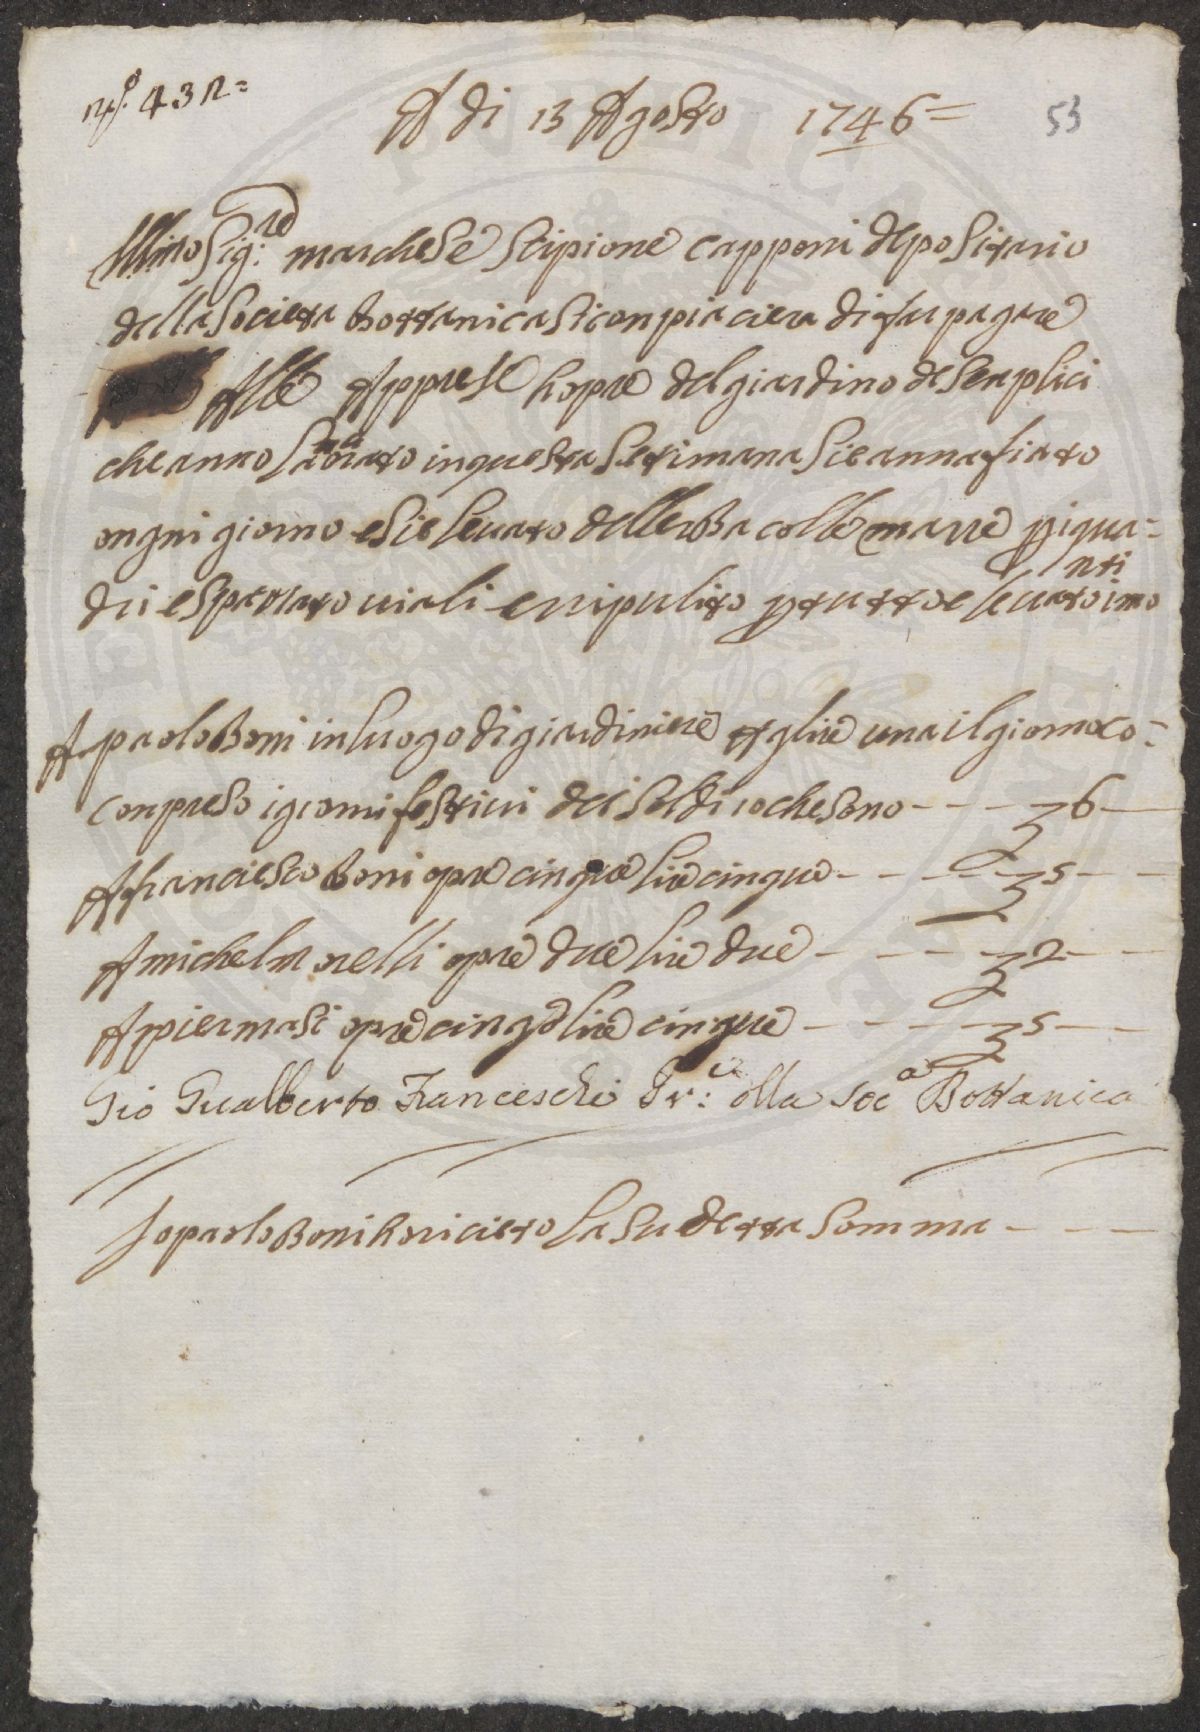 No. 432=
A di 13 Agosto 1746= 53
Illmo Sig:re marchese Scipione capponi depositario
della Societa bottanica si conpiaciera di far pagare
Alle Appresse hopre del giardino de senplici
che anno lavorato in questa Settimana si e annafiato
ongni giorno e si e levato dellerba colle marre p i qua=
dri e spazzato viali e ripulito p tutto e levato i monti
A paolo Boni in luogo di giardiniere A lire una il giorno co=
conpreso i giorni festivi dei soldi 10 che sono - - - £ 6 —
A franciesco boni opre cinque lire cinque - - - £ 5 - -
A michel novelli opre due lire due - - - £ 2 - -
A pier masi opre cinque lire cinque - - - £ 5 - -
Gio Gualberto Franceschi della Soc.a Bottanica
Io paolo Boni ho riciuto la su detta somma - - -